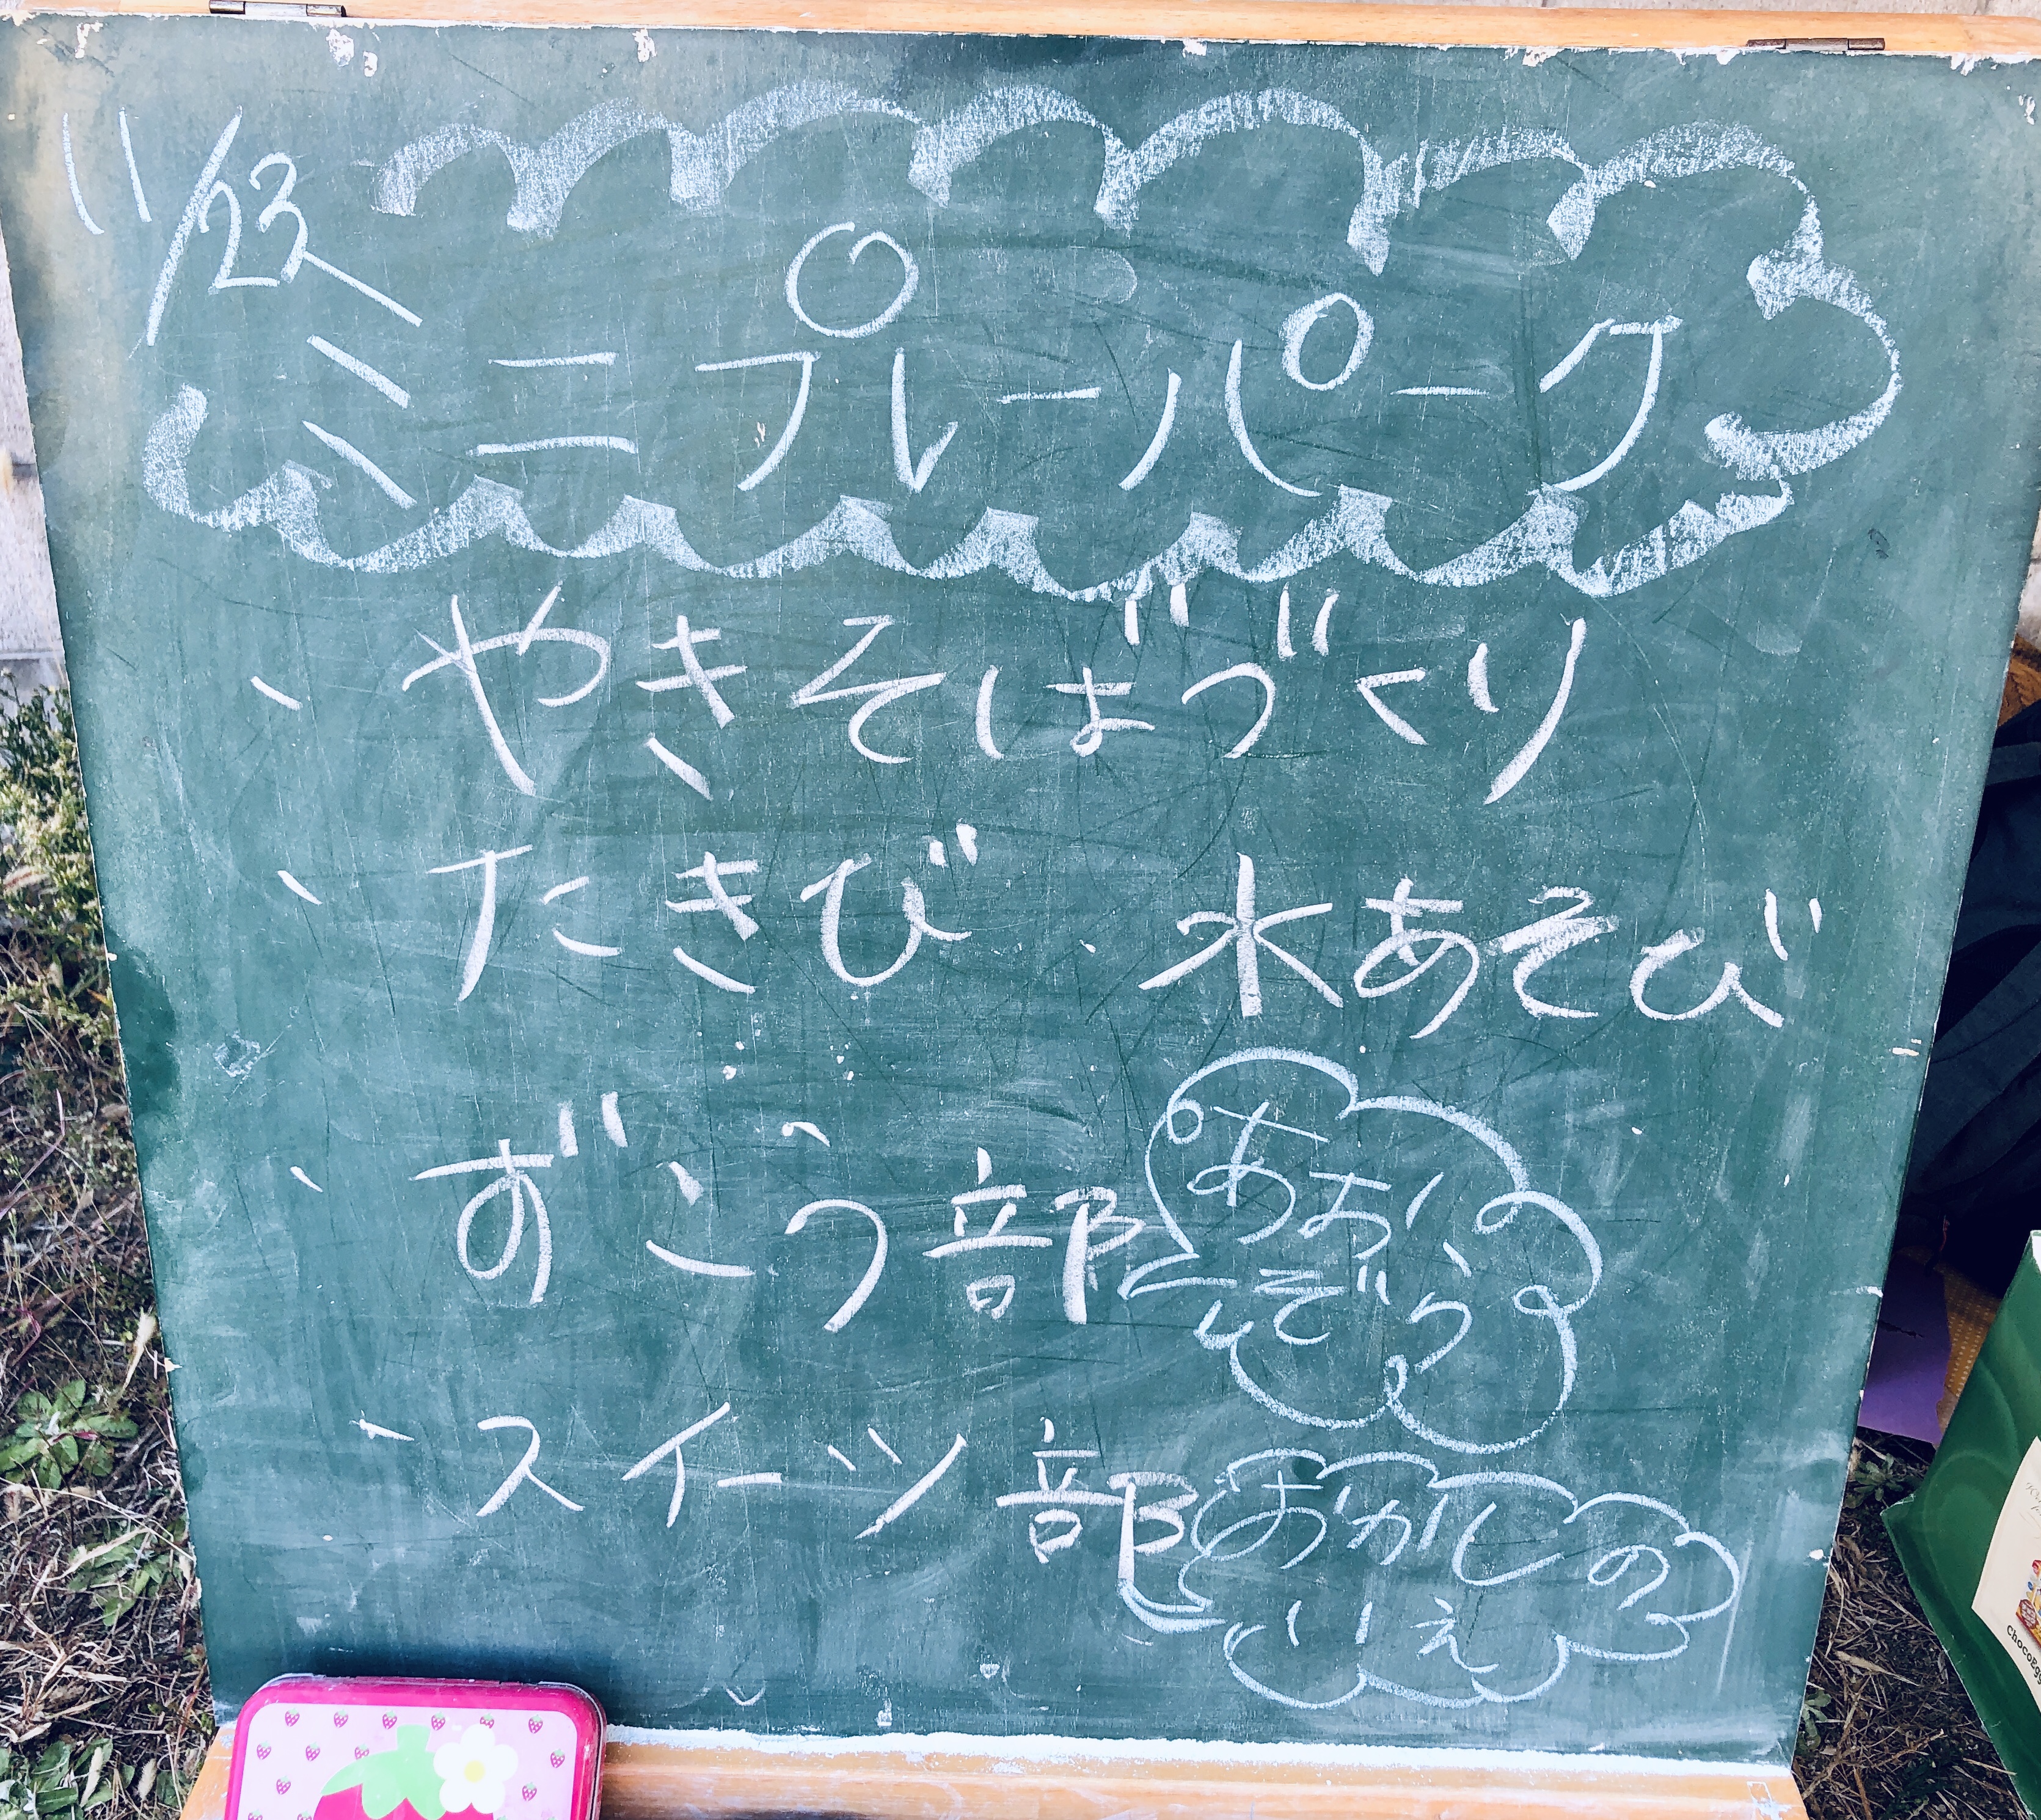 11/23
ミニプレーパーク
、やきそばづくり
、たきび 、水あそび
、ずこう部
あおぞら
、スイーツ部
おかしの
いえ